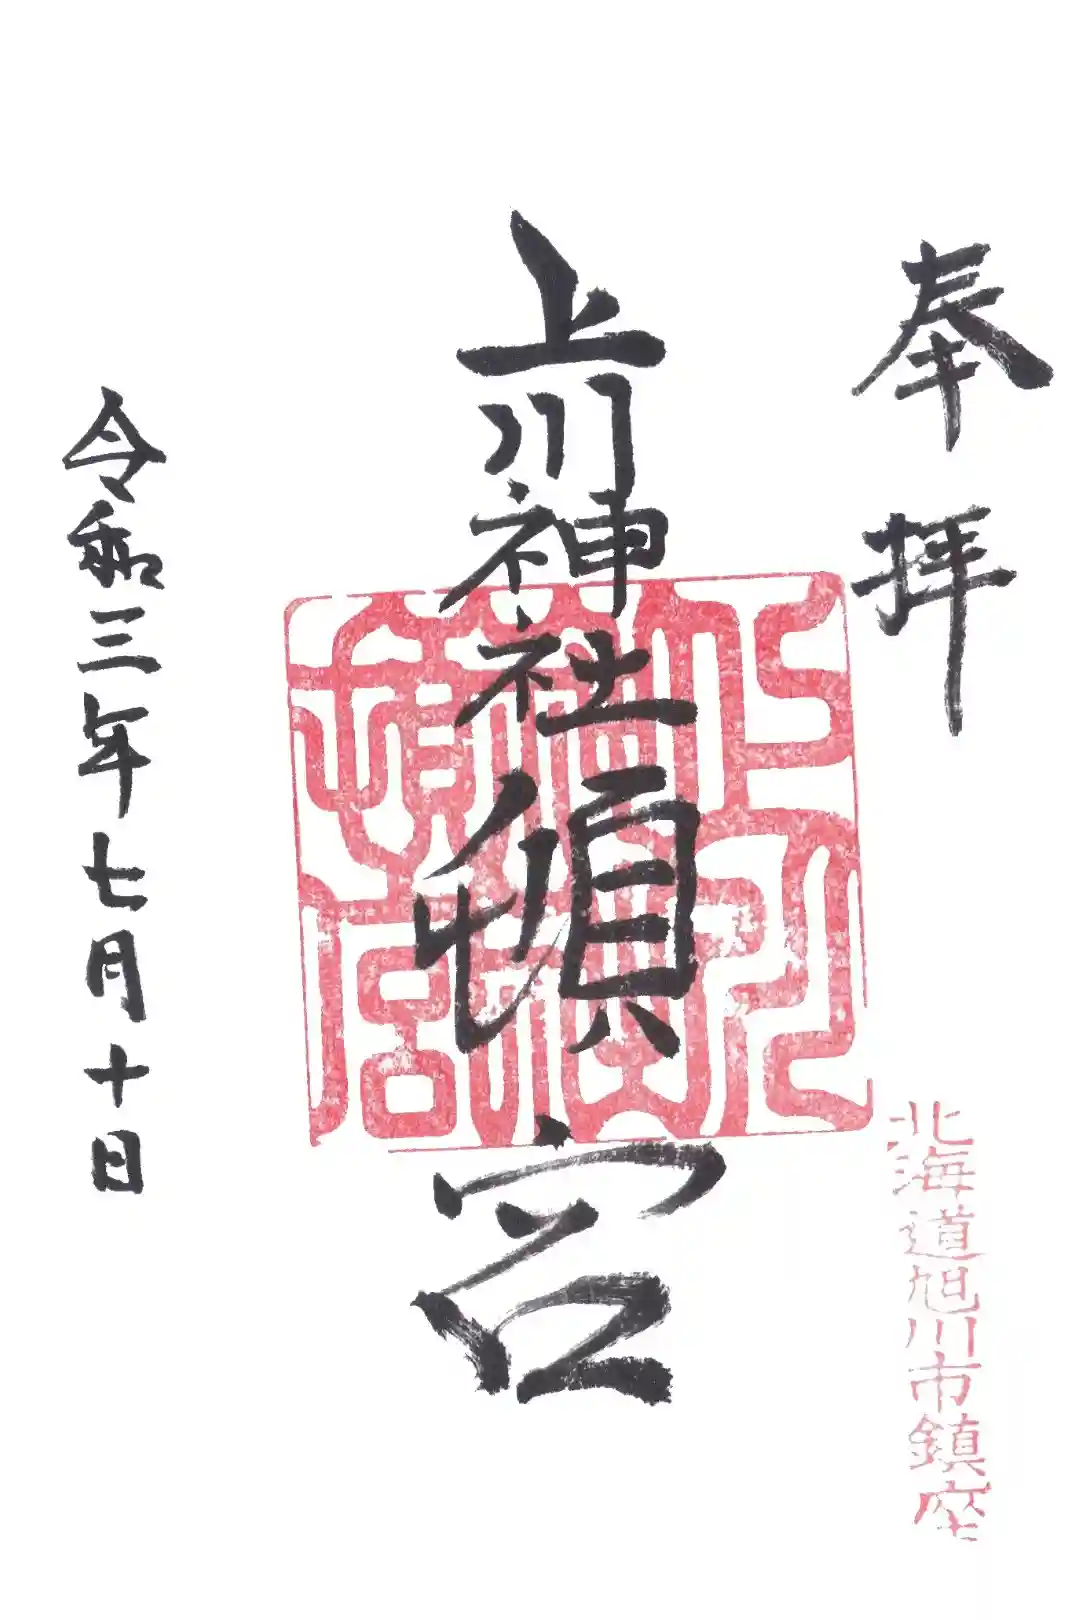 奉拝
北海道旭川市鎮座
上川神社頓宮
令和三年七月十日